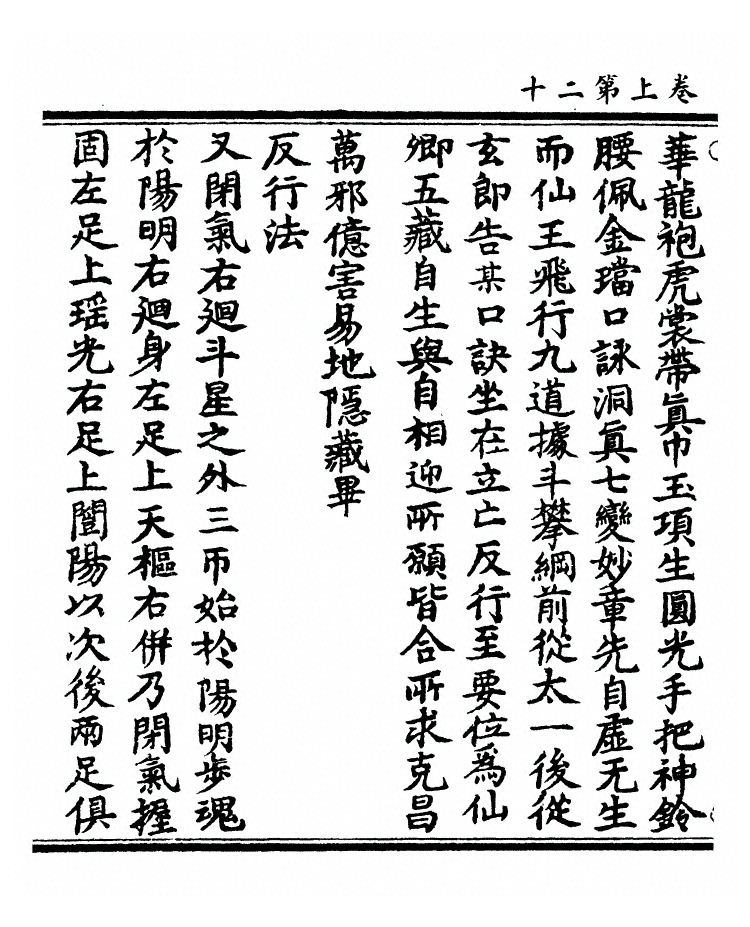 卷上第二十
華龍袍虎裳帶真巾玉項生圓光手把神鈴
腰佩金璫口詠洞真七變妙章先自虛无生
而仙王飛行九道據斗攀綱前從太一後從
玄郎告某口訣坐在立亡反行至要位為仙
卿五藏自生與自相迎所願皆合所求克昌
萬邪億害易地隱藏畢
反行法
又閉氣右迴斗星之外三帀始於陽明步魂
於陽明右迴身左足上天樞右併乃閉氣握
固左足上瑶光右足上闓陽以次後兩足俱